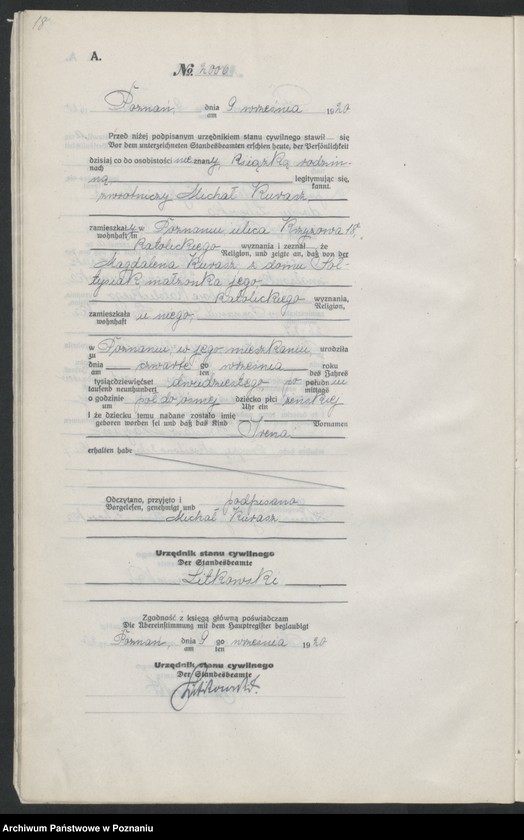 18
A.
№ 2000
Poznań dnia 9 września 1920
am
Przed niżej podpisanym urzędnikiem stanu cywilnego stawił się
Vor dem unterzeichneten Standesbeamten erschien heute, der Persönlichkeit
dzisiaj co do osobistości nieznany książką rodzin-
nach
ną legitymując się,
kannt.
zwrotniczy Michał Kurasz,
zamieszkały w Poznaniu ulica Krzyżowa 18,
wohnhaft in
katolickiego wyznania i zeznał, że
Religion, und zeigte an, daß von der
Magdalena Kurasz z domu Soł-
tysiak małżonka jego
katolickiego wyznania,
Religion,
zamieszkała u niego,
wohnhaft
w Poznaniu, w jego mieszkaniu, urodziła
zu
dnia czwarte go września roku
am ten des Jahres
tysiącdziewięćset dwudziestego po południu
tausend neunhundert mittags
o godzinie pół do ósmej dziecko płci żeńskiej
um Uhr ein
i że dziecku temu nadane zostało imię
geboren worden sei und daß das Kind Vornamen
Irena
erhalten habe
Odczytano, przyjęto i podpisano
Vorgelesen, genehmigt und
Michał Kurasz
Urzędnik stanu cywilnego
Der Standesbeamte
Litkowski
Zgodność z księgą główną poświadczam
Die Übereinstimmung mit dem Hauptregister beglaubigt
Poznań, dnia 9 go września 1920
am ten
Urzędnik stanu cywilnego
Der Standesbeamte
Litkowski.
Archiwum Państwowe w Poznaniu